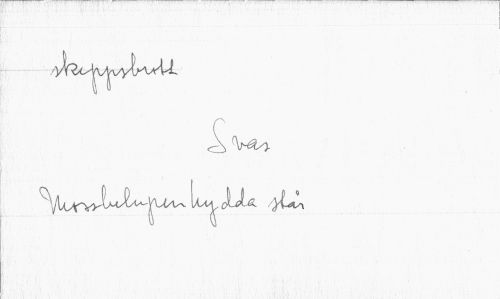 skeppsbrott
Svas
Mossbelupen hydda står